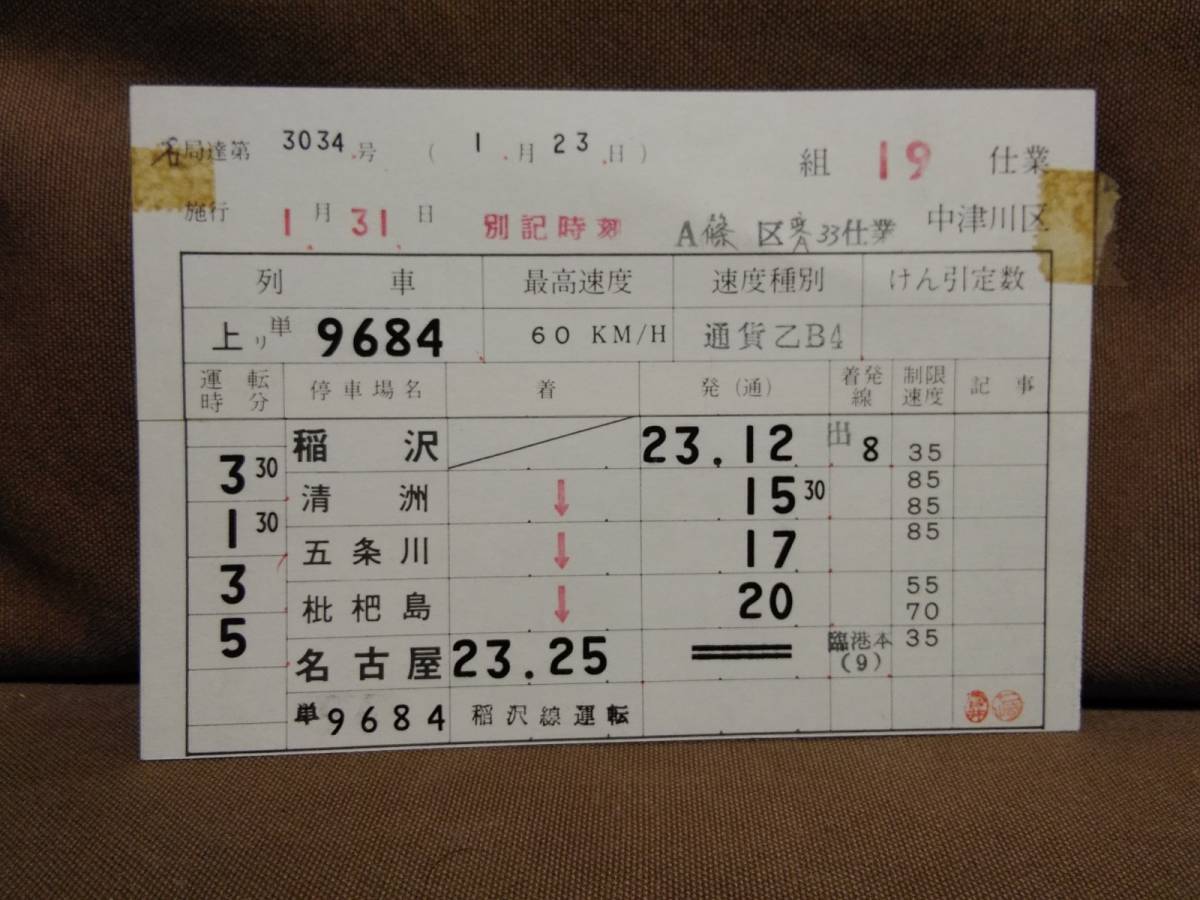 名局達第 3034 号 ( 1.月 23.日 )
組 19 仕業
施行 1.月 31.日 別記時刻 A篠 区 33仕業 中津川区
列車 最高速度 速度種別 けん引定数
上り 単 9684 60 KM/H 通貨乙B4
運転時分 停車場名 着 発(通) 着発線 制限速度 記事
稲沢 23.12 出 8 35
3 30
清洲 ↓ 15 30 85 85
1 30
五条川 ↓ 17 85
3
枇杷島 ↓ 20 55 70
5
名古屋 23.25 臨港本(9) 35
単 9684 稲沢線運転